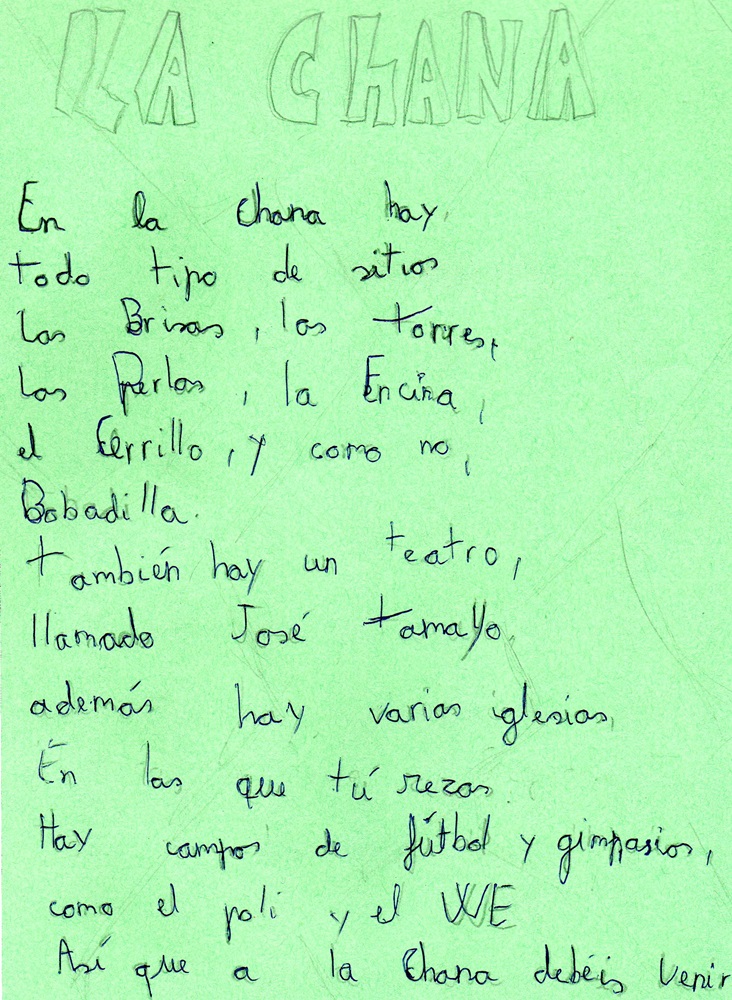 LA CHANA
En la Chana hay
todo tipo de sitios
Las Brisas, las torres,
Las Perlas, la Encina,
el Cerrillo, y como no,
Bobadilla.
también hay un teatro,
llamado José tamayo
además hay varias iglesias,
En las que tú rezas.
Hay campos de fútbol y gimnasios,
como el poli y el WE
Así que a la Chana debéis venir